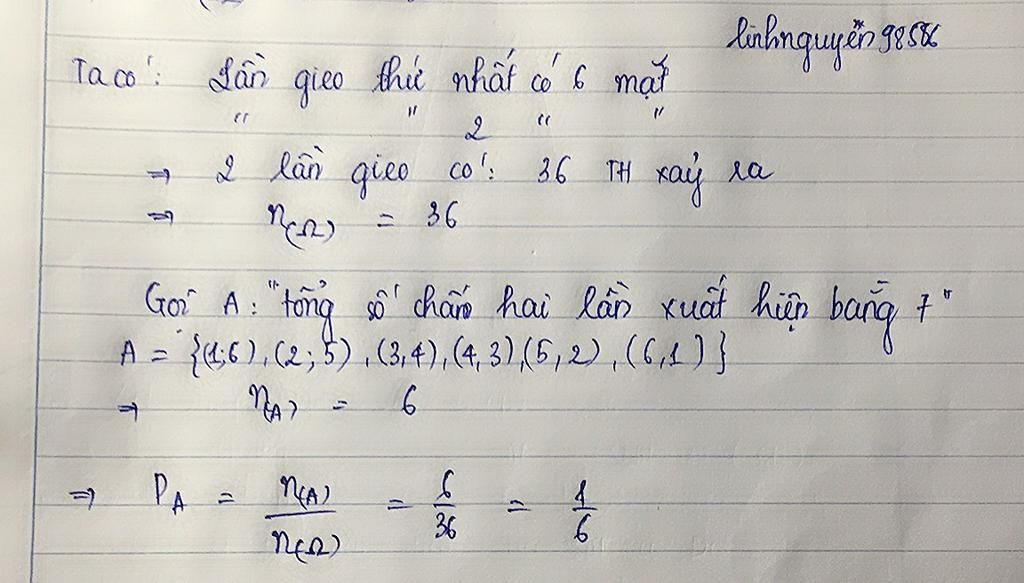 linhnguyễn98586
Ta có: Lần gieo thứ nhất có 6 mặt
" " 2 " "
⇒ 2 lần gieo có: 36 TH xảy ra
⇒ n(Ω) = 36
Gọi A: "tổng số chấm hai lần xuất hiện bằng 7"
A = {(1;6),(2;5),(3,4),(4,3),(5,2),(6,1)}
⇒ n(A) = 6
⇒ P_A = n(A)/n(Ω) = 6/36 = 1/6